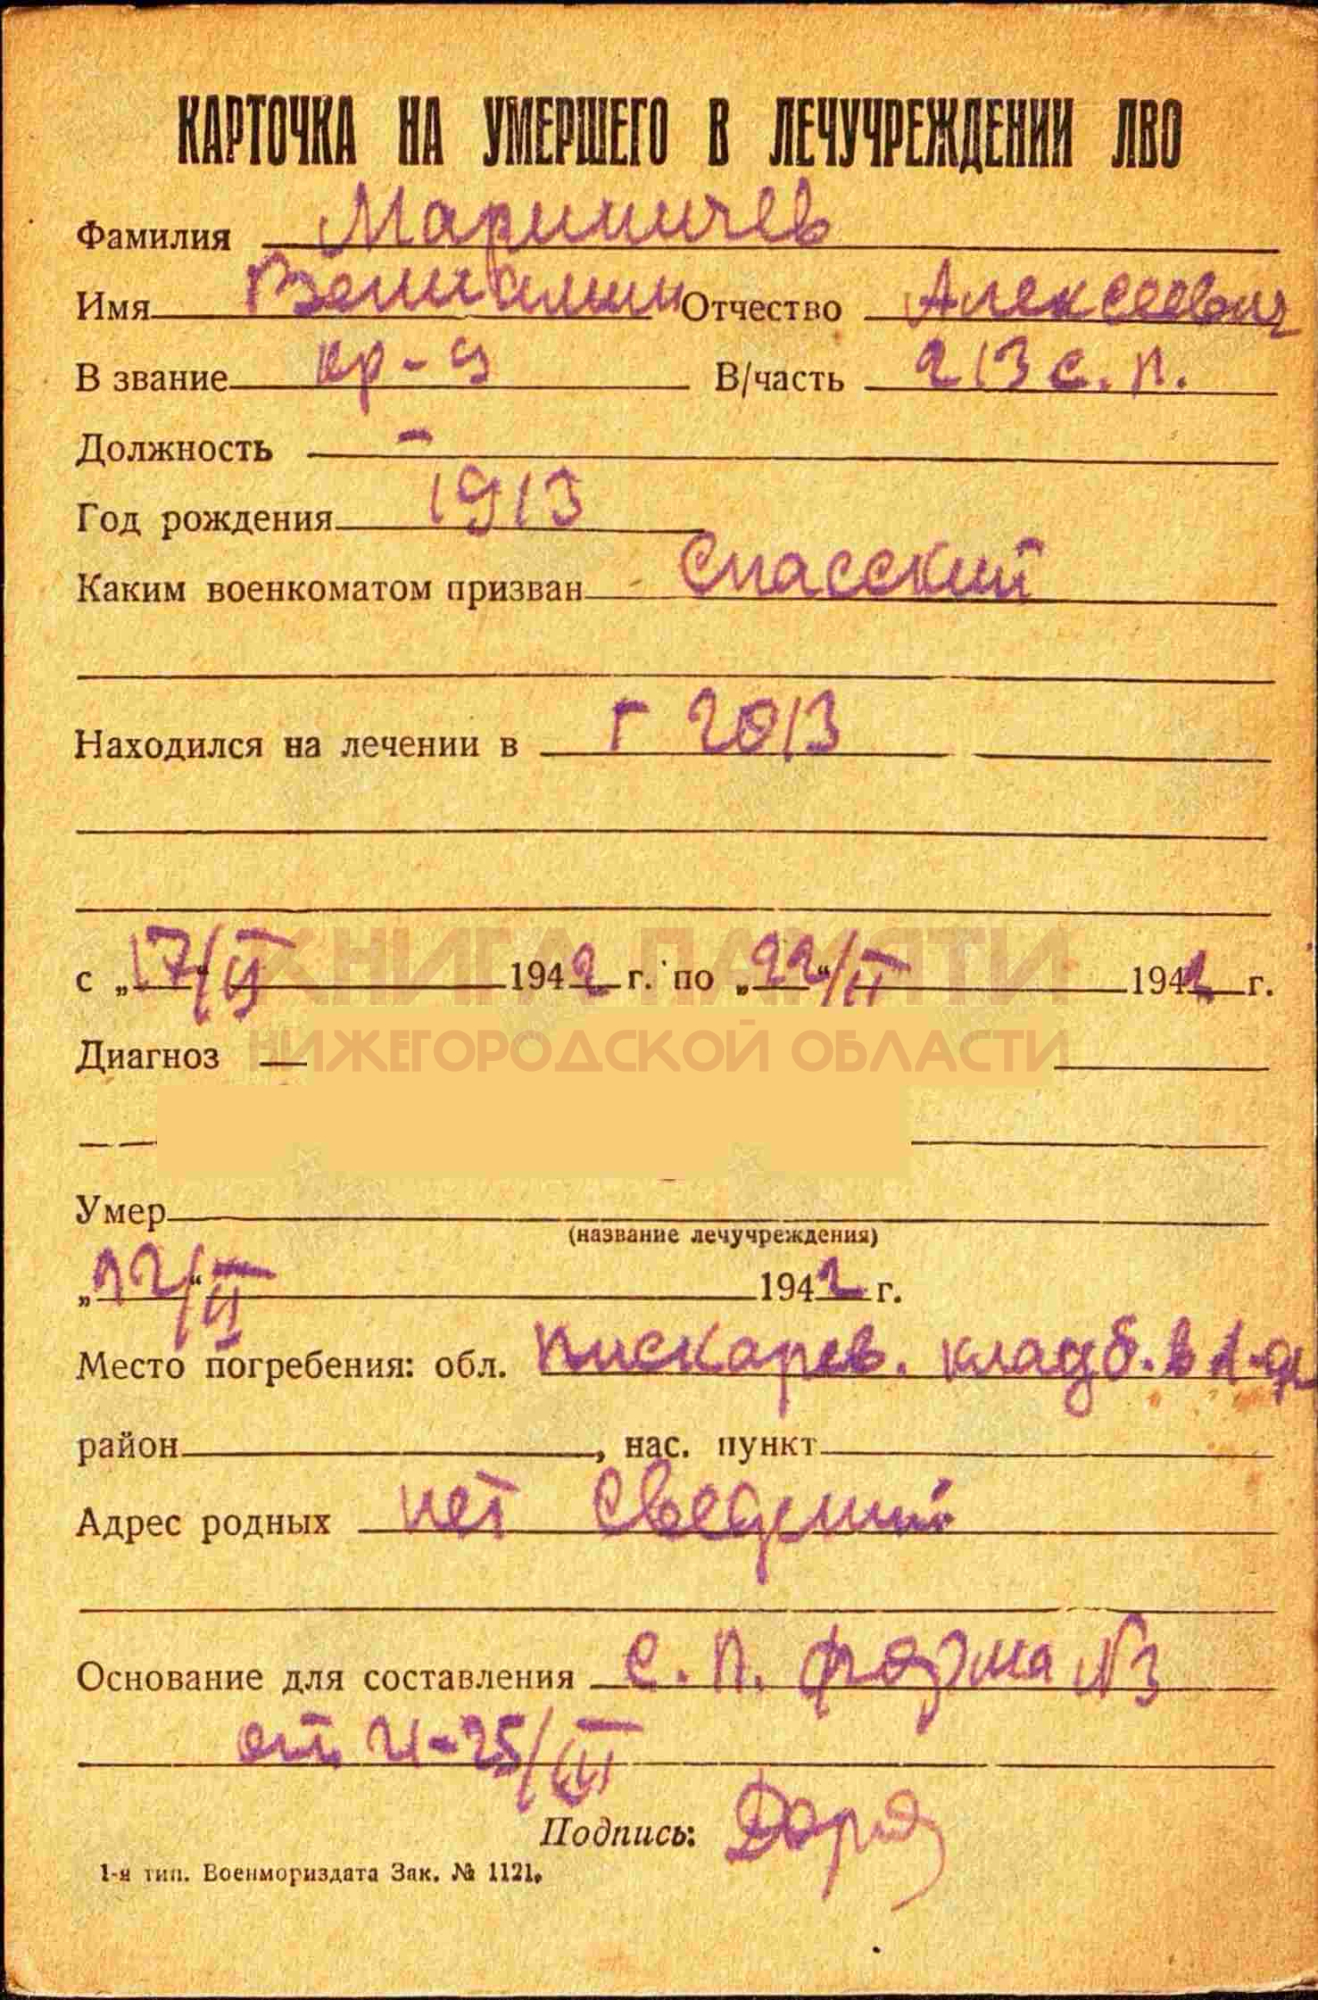 КАРТОЧКА НА УМЕРШЕГО В ЛЕЧУЧРЕЖДЕНИИ ЛВО
Фамилия Маримичев
Имя Вениамин Отчество Алексеевич
В звание кр-ц В/часть 213 с.п.
Должность –
Год рождения 1913
Каким военкоматом призван Спасский
Находился на лечении в Г 2013
с „17/II“ 1942 г. по „22“/II 1942 г.
КНИГА ПАМЯТИ
НИЖЕГОРОДСКОЙ ОБЛАСТИ
Диагноз
Умер
(название лечучреждения)
„22/II“ 1942 г.
Место погребения: обл. Пискарев. кладб. в Л-де
район , нас. пункт
Адрес родных нет сведений
Основание для составления с.п. форма №3
от 21-25/III
Подпись:
1-я тип. Военмориздата Зак. № 1121.